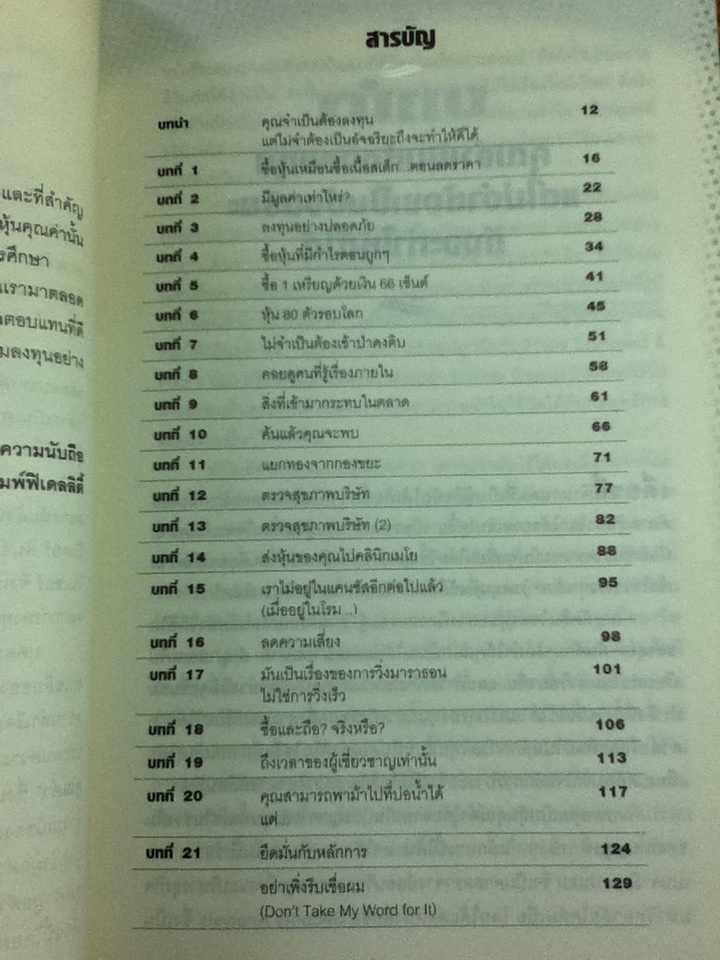 สารบัญ
บทนำ คุณจำเป็นต้องลงทุน 12
แต่ไม่จำต้องเป็นอัจฉริยะถึงจะทำให้ดีได้
บทที่ 1 ซื้อหุ้นเหมือนซื้อเนื้อสเต็ก...ตอนลดราคา 16
บทที่ 2 มีมูลค่าเท่าไหร่? 22
บทที่ 3 ลงทุนอย่างปลอดภัย 28
บทที่ 4 ซื้อหุ้นที่มีกำไรตอนถูกๆ 34
บทที่ 5 ซื้อ 1 เหรียญด้วยเงิน 66 เซ็นต์ 41
บทที่ 6 หุ้น 80 ตัวรอบโลก 45
บทที่ 7 ไม่จำเป็นต้องเข้าป่าดงดิบ 51
บทที่ 8 คอยดูคนที่รู้เรื่องภายใน 58
บทที่ 9 สิ่งที่เข้ามากระทบในตลาด 61
บทที่ 10 ค้นแล้วคุณจะพบ 66
บทที่ 11 แยกทองจากกองขยะ 71
บทที่ 12 ตรวจสุขภาพบริษัท 77
บทที่ 13 ตรวจสุขภาพบริษัท (2) 82
บทที่ 14 ส่งหุ้นของคุณไปคลินิกเมโย 88
บทที่ 15 เราไม่อยู่ในแคนซัสอีกต่อไปแล้ว 95
(เมื่ออยู่ในโรม...)
บทที่ 16 ลดความเสี่ยง 98
บทที่ 17 มันเป็นเรื่องของการวิ่งมาราธอน 101
ไม่ใช่การวิ่งเร็ว
บทที่ 18 ซื้อและถือ? จริงหรือ? 106
บทที่ 19 ถึงเวลาของผู้เชี่ยวชาญเท่านั้น 113
บทที่ 20 คุณสามารถพาม้าไปที่บ่อน้ำได้ 117
แต่
บทที่ 21 ยึดมั่นกับหลักการ 124
อย่าเพิ่งรีบเชื่อผม 129
(Don't Take My Word for It)
และที่สำคัญ
หุ้นคุณค่านั้น
รศึกษา
นเรามาตลอด
ตอบแทนที่ดี
มลงทุนอย่าง
ความนับถือ
มพ์ฟิเดลลิตี้